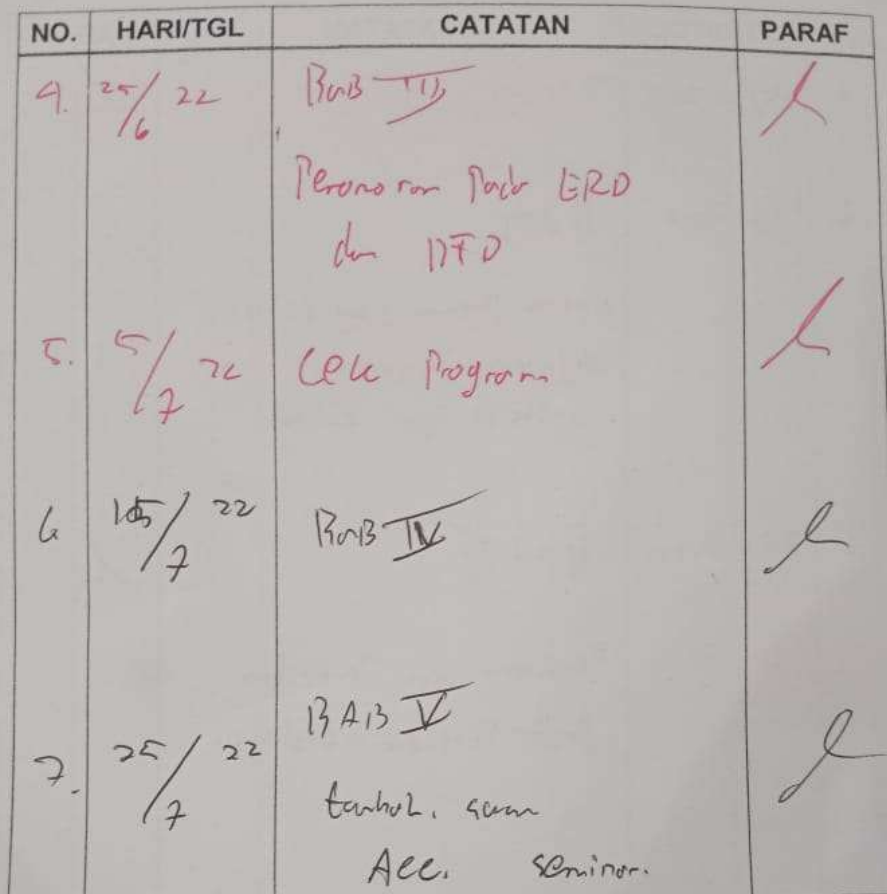 NO. HARI/TGL CATATAN PARAF
4. 25/6 22 BAB III
Penomoran Pada ERD
dan DFD
5. 5/7 22 Cek Program
6 15/7 22 BAB IV
BAB V
7. 25/7 22
tambah. saran
Acc. seminar.